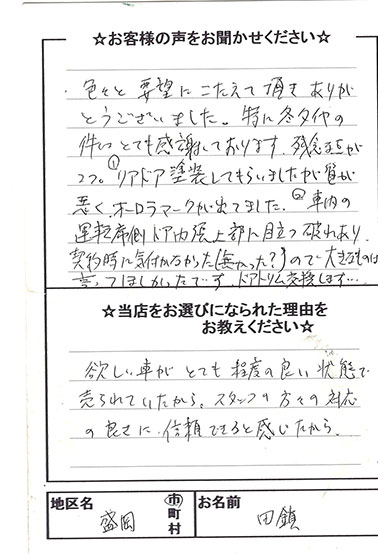 ☆お客様の声をお聞かせください☆
・色々と要望にこたえて頂きありが
とうございました。特に冬タイヤの
件はとても感謝しております。残念な点が
2つ。①リアドア塗装してもらいましたが質が
悪く、オーロラマークが出てました。②車内の
運転席側ドア内張上部に目立つ破れあり、
契約時に気付かなかった(無かった?)ので大きなものは
言ってほしかったです。ドアトリム交換します…。
☆当店をお選びになられた理由を
お教えください☆
欲しい車がとても程度の良い状態で
売られていたから。スタッフの方々の対応
の良さに信頼できると感じたから。
地区名 盛岡 市町村 お名前 田鎖